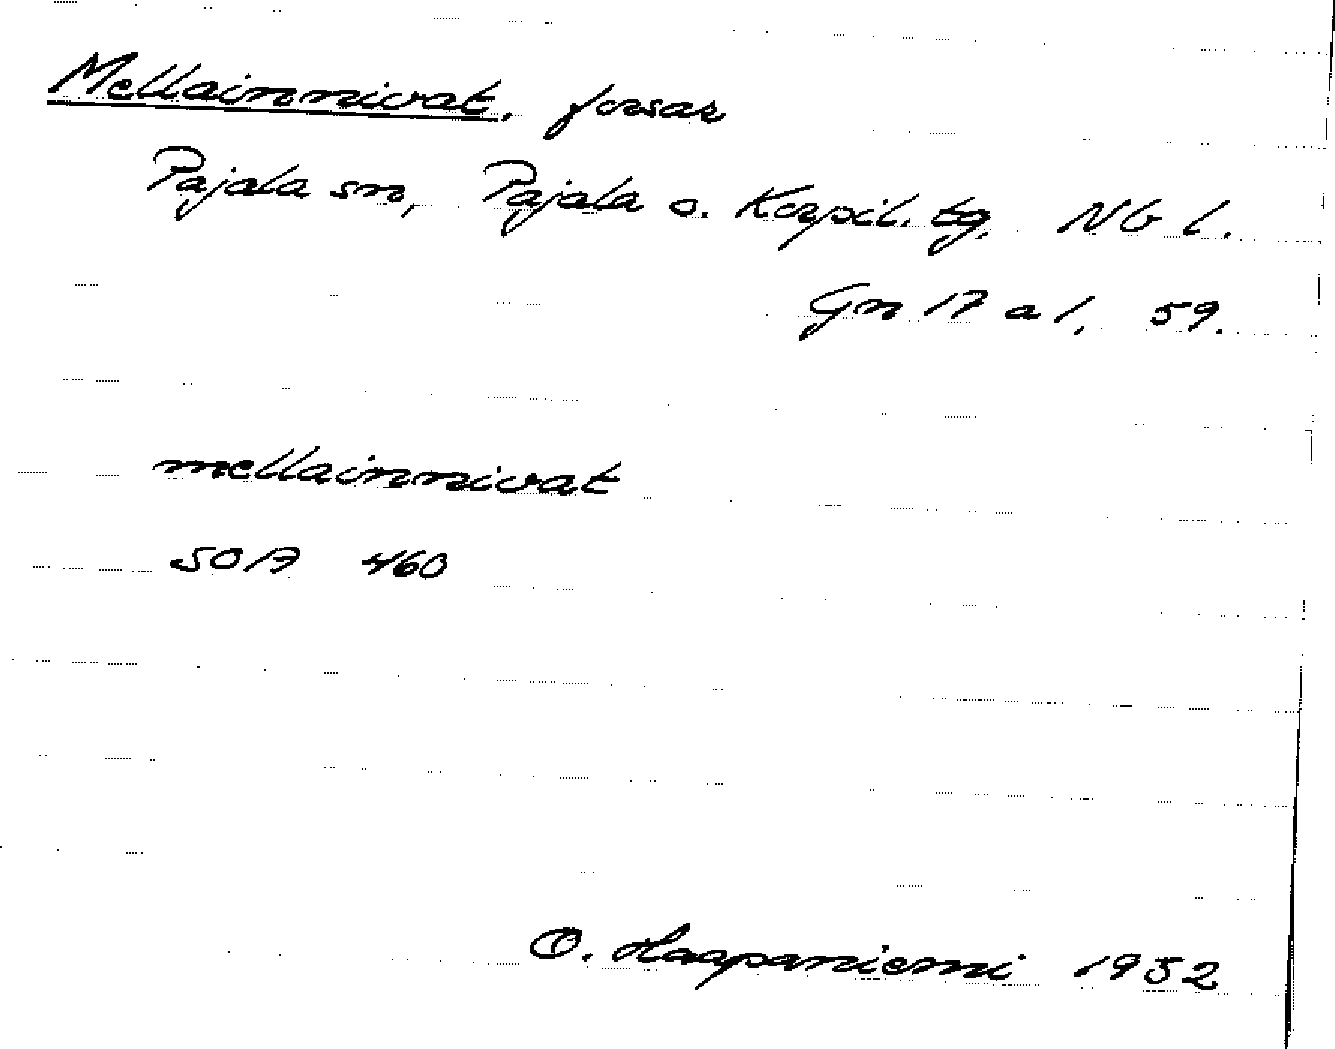 Mellainnivat, forsar
Pajala sn, Pajala o. Korpil. tg. NB l.
Gn 17 a 1, 59.
mellainnivat
SOA 460
O. Haapaniemi 1932